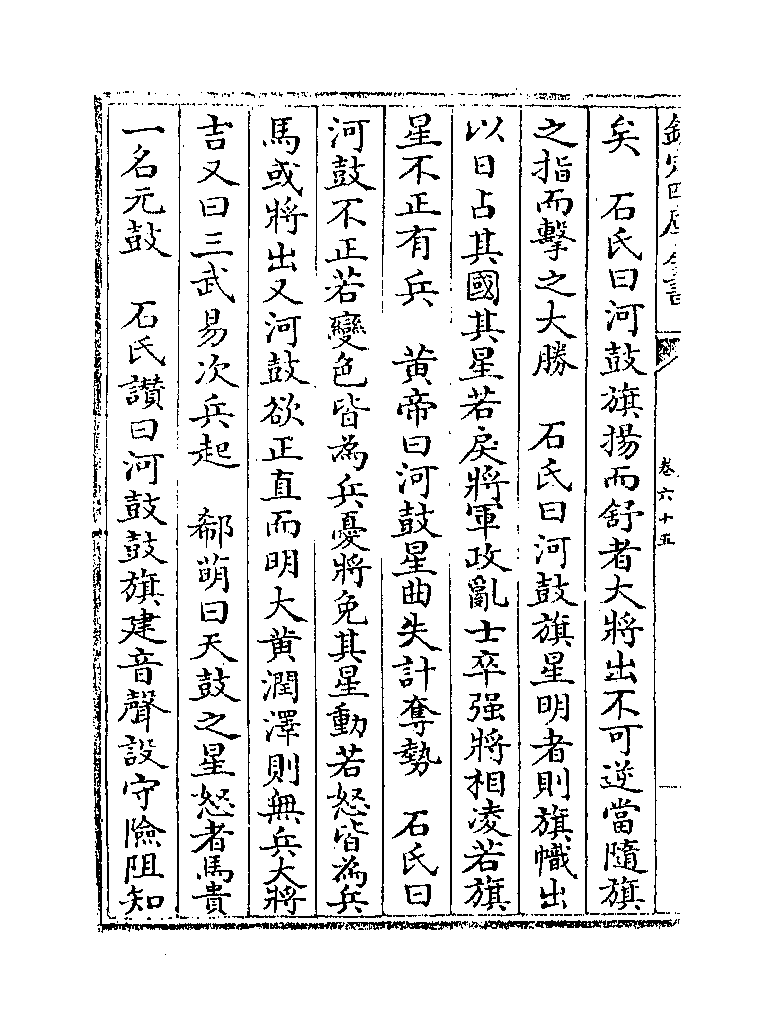 欽定四庫全書
卷六十五
矣　石氏曰河鼓旗揚而舒者大將出不可逆當隨旗
之指而擊之大勝　石氏曰河鼓旗星明者則旗幟出
以日占其國其星若戾將軍政亂士卒强將相凌若旗
星不正有兵　黄帝曰河鼓星曲失計奪勢　石氏曰
河鼓不正若變色皆為兵憂將免其星動若怒皆為兵
馬或將出又河鼓欲正直而明大黄潤澤則無兵大將
吉又曰三武易次兵起　郗萌曰天鼓之星怒者馬貴
一名元鼓　石氏讃曰河鼓鼓旗建音聲設守險阻知